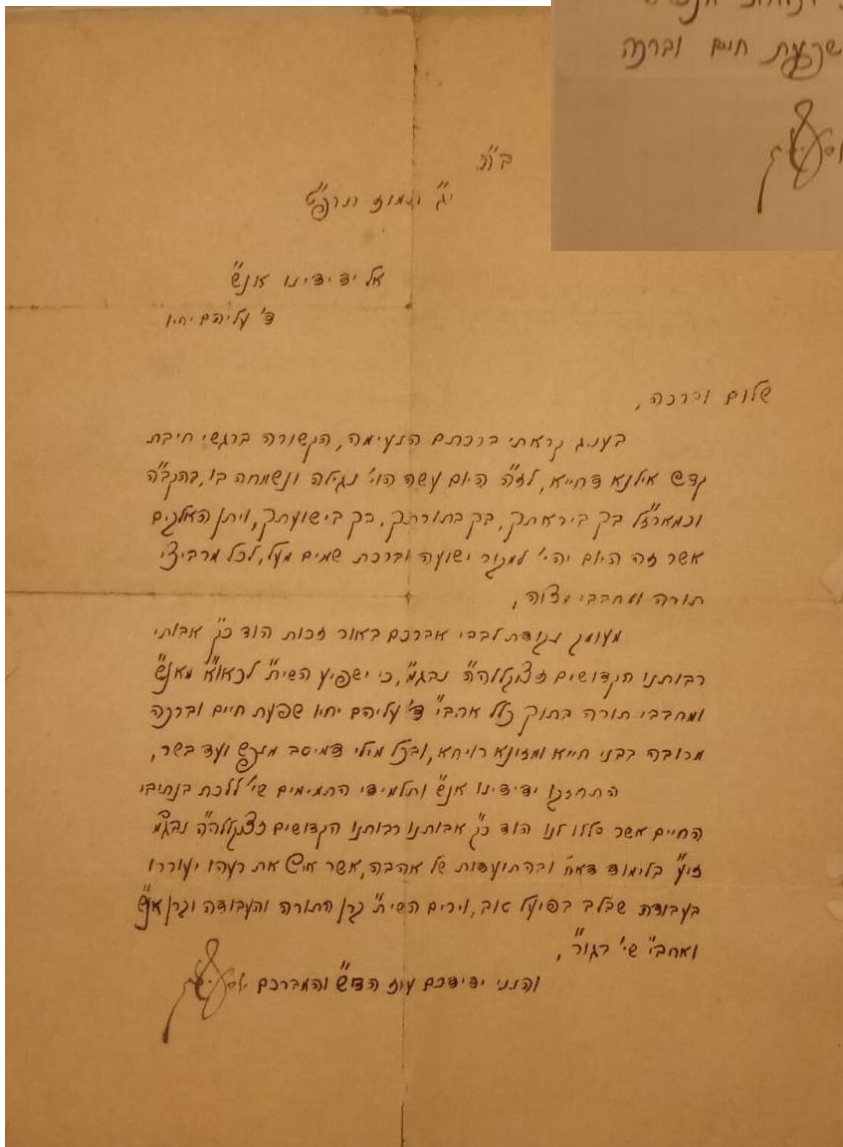 ב"ה
י"ג תמוז תרפ"ט
אל ידידינו אנ"ש
ד' עליהם יחיו
שלום וברכה,
בענג קראתי ברכתם הנעימה, הקשורה ברגשי חיבת
קדש אילנא דחייא, לז"ה היום עשה הוי' נגילה ונשמחה בו, בהקב"ה
וכמארז"ל בך ביראתך, בך בתורתך, בך בישועתך, ויתן האלקים
אשר זה היום יהי' למקור ישועה וברכת שמים מעל, לכל מרביצי
תורה ומחבבי מצוה,
מעומק נקודת לבבי אברכם באור זכות הוד כ"ק אבותי
רבותנו הקדושים זצוקללה"ה נבג"מ, כי ישפיע השי"ת לכאו"א מאנ"ש
ומחבבי תורה בתוך כלל אחב"י ד' עליהם יחיו שפעת חיים וברכה
מרובה בבני חייא ומזונא רויחא, ובכל מילי דמיטב מנפש ועד בשר,
התחזקו ידידינו אנ"ש ותלמידי התמימים שי' ללכת בנתיבי
החיים אשר סללו לנו הוד כ"ק אבותנו רבותנו הקדושים זצוקללה"ה נבג"מ
זי"ע בלימוד דא"ח ובהתועדות של אהבה, אשר איש את רעהו יעוררו
בעבודה שבלב בפועל טוב, וירים השי"ת קרן התורה והעבודה וקרן אנ"ש
ואחב"י שי' בגו"ר,
והנני ידידכם עוז הדו"ש והמברכם
שפעת חיים וברכה